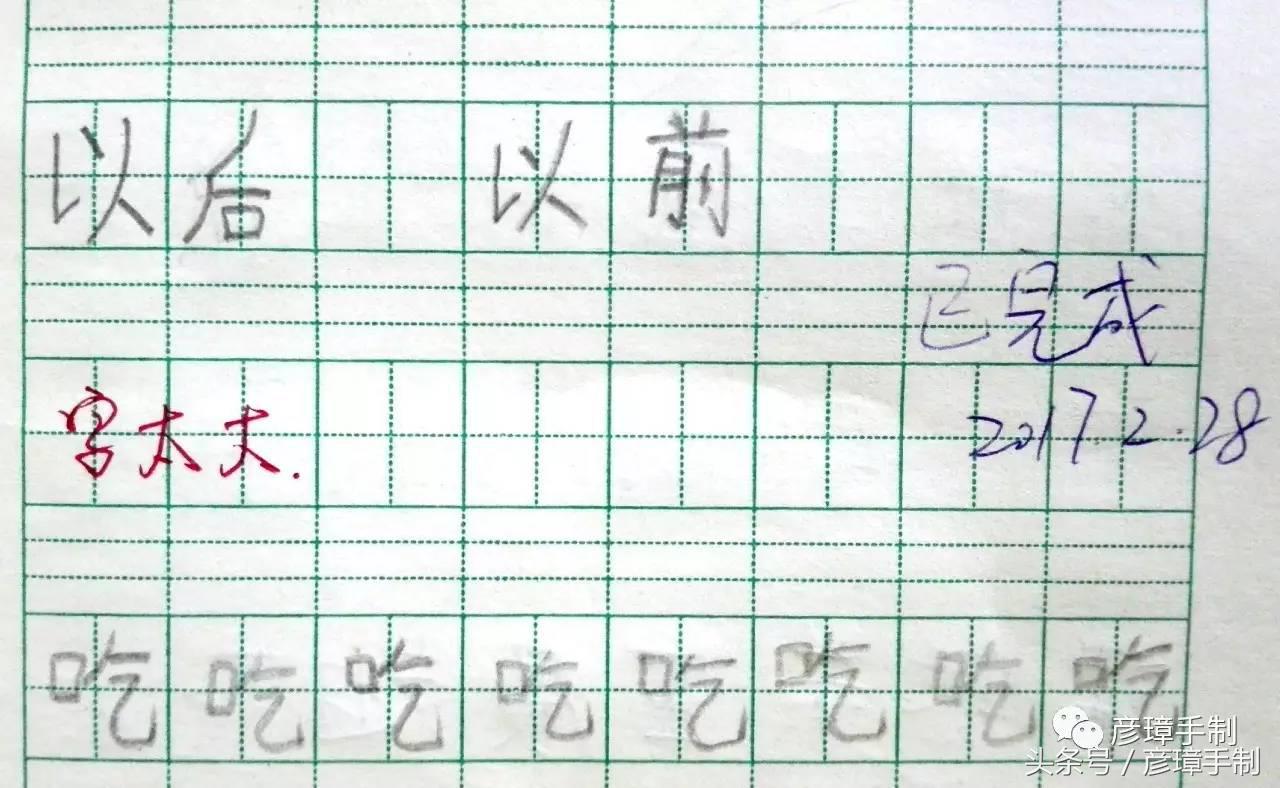 以后 以前
已完成
字太大. 2017.2.28
吃吃吃吃吃吃吃吃
彦璋手制
头条号 / 彦璋手制